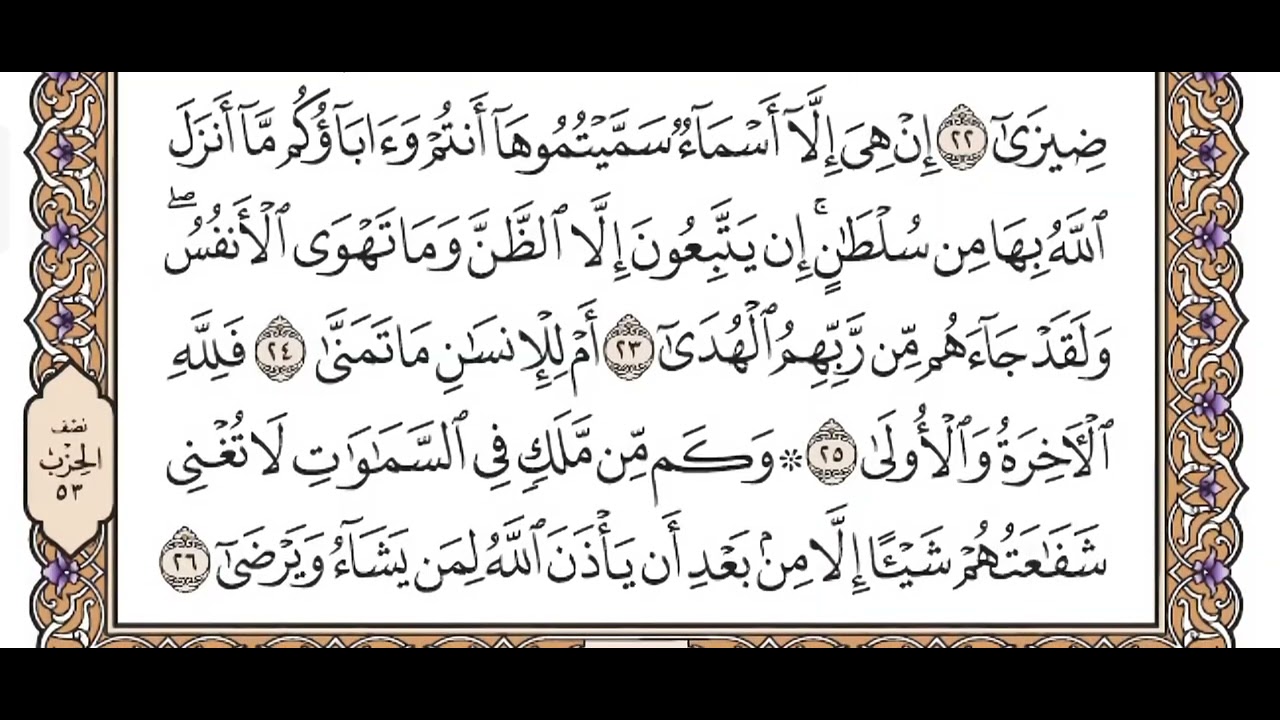 ضِيزَىٰٓ ٢٢ إِنۡ هِيَ إِلَّآ أَسۡمَآءٞ سَمَّيۡتُمُوهَآ أَنتُمۡ وَءَابَآؤُكُم مَّآ أَنزَلَ
ٱللَّهُ بِهَا مِن سُلۡطَٰنٍۚ إِن يَتَّبِعُونَ إِلَّا ٱلظَّنَّ وَمَا تَهۡوَى ٱلۡأَنفُسُۖ
وَلَقَدۡ جَآءَهُم مِّن رَّبِّهِمُ ٱلۡهُدَىٰٓ ٢٣ أَمۡ لِلۡإِنسَٰنِ مَا تَمَنَّىٰ ٢٤ فَلِلَّهِ
ٱلۡأٓخِرَةُ وَٱلۡأُولَىٰ ٢٥ ۞ وَكَم مِّن مَّلَكٖ فِي ٱلسَّمَٰوَٰتِ لَا تُغۡنِي
شَفَٰعَتُهُمۡ شَيۡـًٔا إِلَّا مِنۢ بَعۡدِ أَن يَأۡذَنَ ٱللَّهُ لِمَن يَشَآءُ وَيَرۡضَىٰٓ ٢٦
نصۡف
الحِزۡب
٥٣